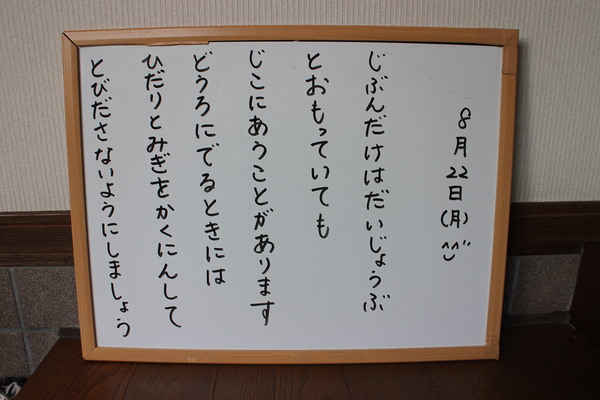 8月22日(月)^^
じぶんだけはだいじょうぶ
とおもっていても
じこにあうことがあります
どうろにでるときには
ひだりとみぎをかくにんして
とびださないようにしましょう